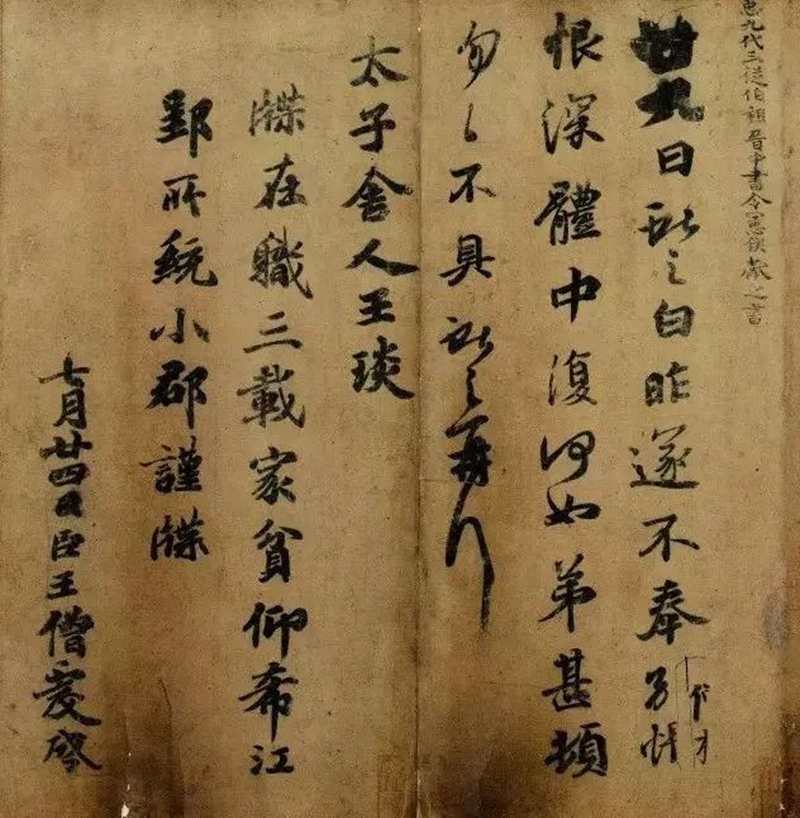 九代三從伯祖晉中書令憲侯獻之書
廿九日獻之白昨遂不奉別悵
恨深體中復何如弟甚頓
勿勿不具獻之再拜
太子舍人王琰
牒在職三載家貧仰希江
郢所統小郡謹牒
七月廿四日臣王僧虔啓